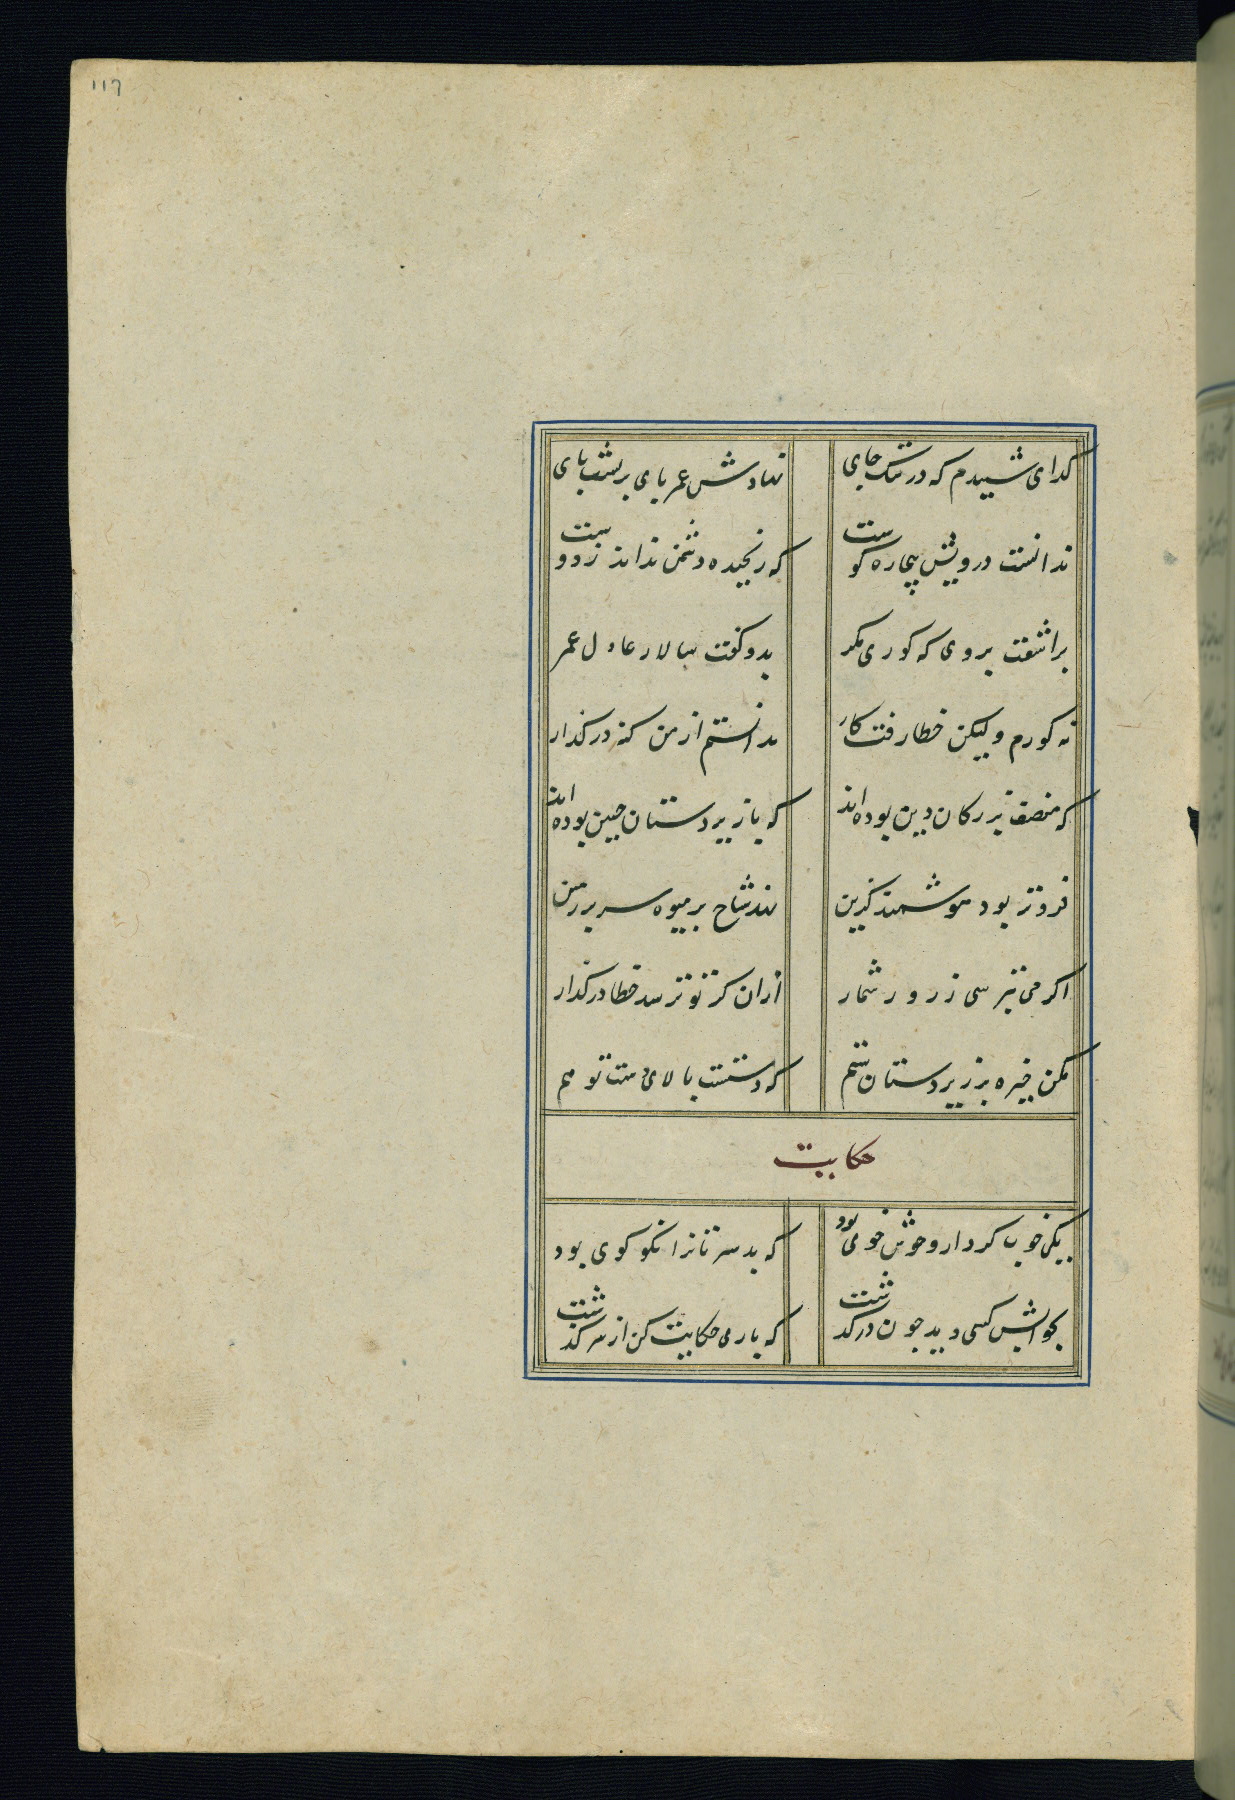 ۱۱۶
کدای شنیدم که در تنک جای نهادش عمر پای بر پشت پای
ندانست درویش بیچاره کوست که رنجیده دشمن نداند ز دوست
براشفت بروی که کوری مکر بدو کفت سالار عادل عمر
نه کورم ولیکن خطا رفت کار ندانستم از من کنه در کذار
که منصف بزرکان دین بوده‌اند که با زیردستان چنین بوده‌اند
فروتن بود هوشمند کزین نهد شاخ پر میوه سر بر زمین
اکر می بترسی ز روز شمار ازان کز تو ترسد خطا در کذار
مکن خیره بر زیردستان ستم که دستست بالای دست تو هم
حکایت
یکی خوب کردار و خوش خوی بود که بد سرتانرا نکو کوی بود
بخوابش کسی دید چون در کذشت که باری حکایت کن از سر کذشت